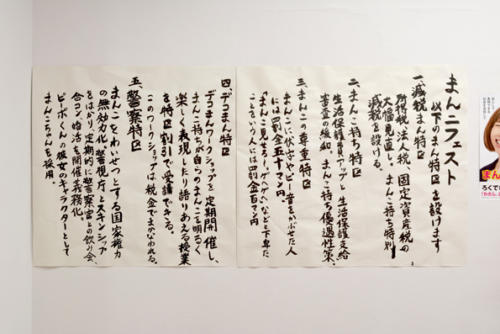 まんこフェスト
以下のまん特区を設けます
一、減税まん特区
所得税、法人税、固定資産税の
大幅見直し。まんこ持ち特別
減税を設ける。
二、まんこ持ち特区
生活保護費アップと生活保護支給
審査の緩和。まんこ持ち優遇性策。
三、まんこの尊重特区
まんこに伏せ字やピー音をかぶせた人
には罰金五十万円。
まんこ見せろ
ことをいう人には罰金百万円
四、デコまん特区
デコまんワークショップを定期開催し、
まんこ持ちが自らのまんこを明るく
楽しく表現したり語りあえる授業
を特区割引で受講できる。
このワークショップは税金でまかなわれる。
五、警察特区
まんこをわいせつとする国家権力
の無効化。警視庁とスキンシップ
をはかり、定期的に警察官との飲み会、
合コン、婚活を開催義務化。
ピーポくんの彼女のキャラクターとして
まんこちゃんを採用。
まん
ろくで